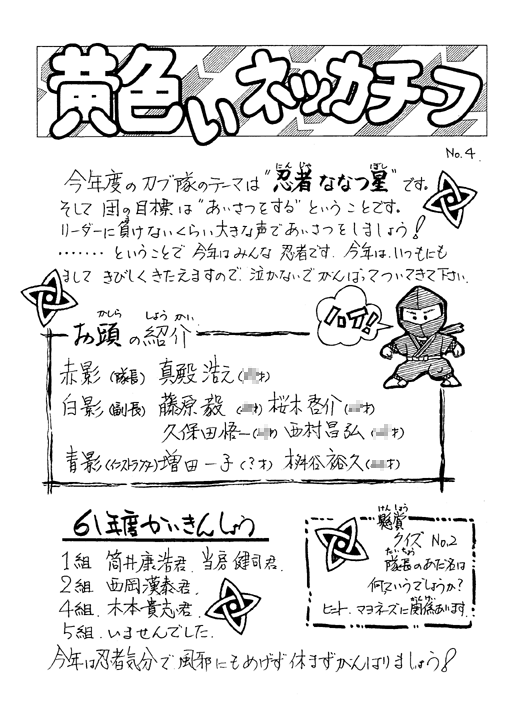 黄色いネッカチーフ
No.4
今年度のカブ隊のテーマは"忍者ななつ星"です。
そして団の目標は"あいさつをする"ということです。
リーダーに負けないくらい大きな声であいさつをしましょう!
・・・・・・・ということで今年はみんな忍者です。今年は、いつもにも
まして きびしくきたえますので、泣かないでがんばってついてきて下さい。
ハイ!
お頭の紹介
赤影(隊長) 真殿浩之(才)
白影(副長) 藤原毅(才) 桜木啓介(才)
久保田悟一(才) 西村昌弘(才)
青影(インストラクター)増田一子(?才) 桝谷裕久(才)
61年度かいきんしょう
1組 筒井康浩君、当房健司君、
2組 西岡漢泰君、
4組、木本貴志君、
5組、いませんでした。
懸賞
クイズ No.2
隊長のあだ名は
何ていうでしょうか?
ヒント、マヨネーズに関係あります。
今年は忍者気分で、風邪にもめげず休まずがんばりましょう!